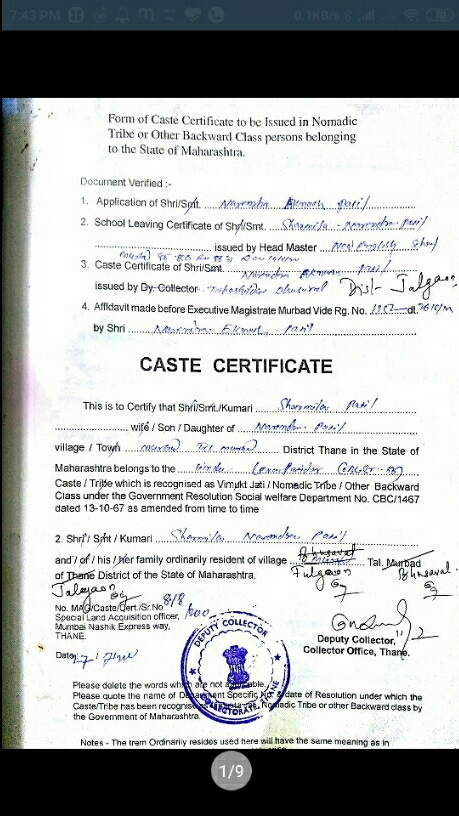 7:43 PM
0.1KB/s
70
Form of Caste Certificate to be Issued in Nomadic
Tribe or Other Backward Class persons belonging
to the State of Maharashtra.
Document Verified :-
1. Application of Shri/Smt. Narendra Eknath Patil
2. School Leaving Certificate of Shri/Smt. Sharmila Narendra Patil
issued by Head Master New English
3. Caste Certificate of Shri/Smt. Narendra Eknath Patil
issued by Dy. Collector Tahasildar Bhusaval Dist- Jalgaon
4. Affidavit made before Executive Magistrate Murbad Vide Rg. No. dt.
by Shri Narendra Eknath Patil
CASTE CERTIFICATE
This is to Certify that Shri/Smt./Kumari Sharmila Patil
wife / Son / Daughter of Narendra Patil
village / Town District Thane in the State of
Maharashtra belongs to the Hindu
Caste / Tribe which is recognised as Vimukt Jati / Nomadic Tribe / Other Backward
Class under the Government Resolution Social welfare Department No. CBC/1467
dated 13-10-67 as amended from time to time
2. Shri / Smt / Kumari Sharmila Narendra Patil
and / of / his / her family ordinarily resident of village Bhusaval Tal. Murbad
Fulgaon Bhusaval
of Thane District of the State of Maharashtra.
Jalgaon
No. MAG/Caste/Cert./Sr.No.
Special Land Acquisition officer,
Mumbai Nashik Express way,
THANE.
Date
DEPUTY COLLECTOR
COLLECTORATE, THANE
Deputy Collector,
Collector Office, Thane.
Please delete the words which are not applicable.
Please quote the name of Department Specific No. & date of Resolution under which the
Caste/Tribe has been recognised Nomadic Tribe or other Backward class by
the Government of Maharashtra.
Notes - The tram Ordinarily resides used here will have the same meaning as in
1/9